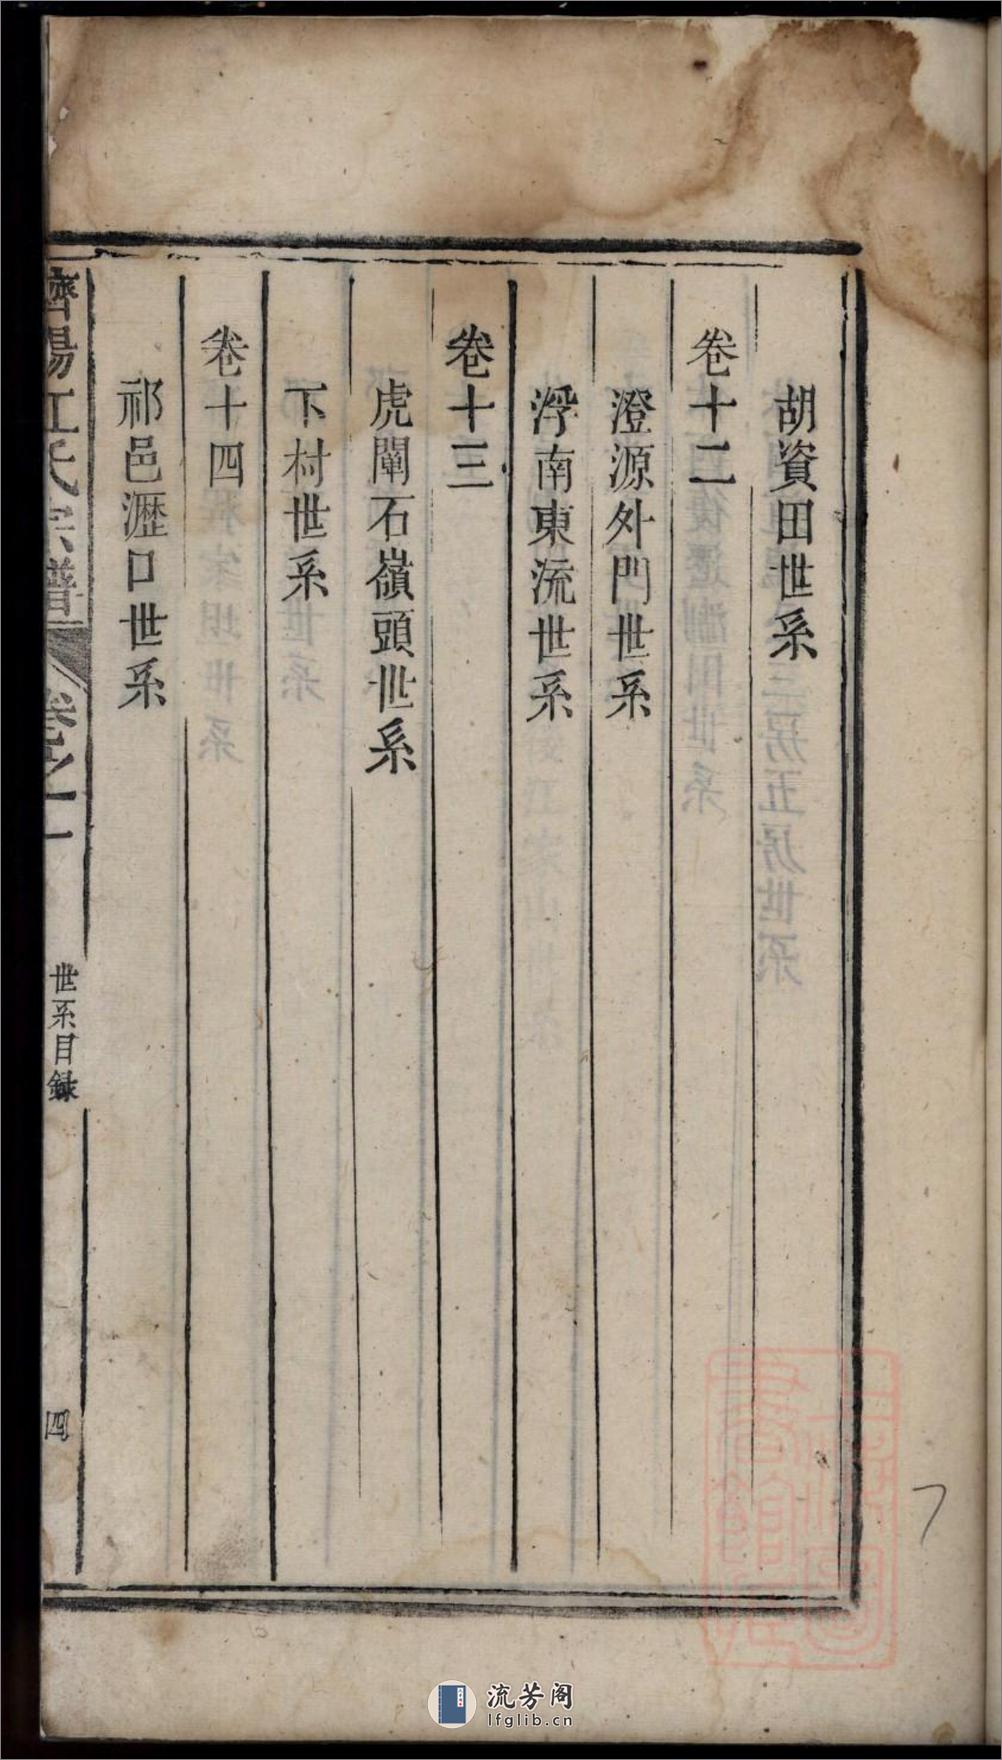 胡資田世系
卷十二
澄源外門世系
浮南東流世系
卷十三
虎闈石嶺頭世系
下村世系
卷十四
祁邑瀝口世系
濟陽江氏宗譜
卷之一
世系目錄
四
7
流芳阁
lfglib.cn